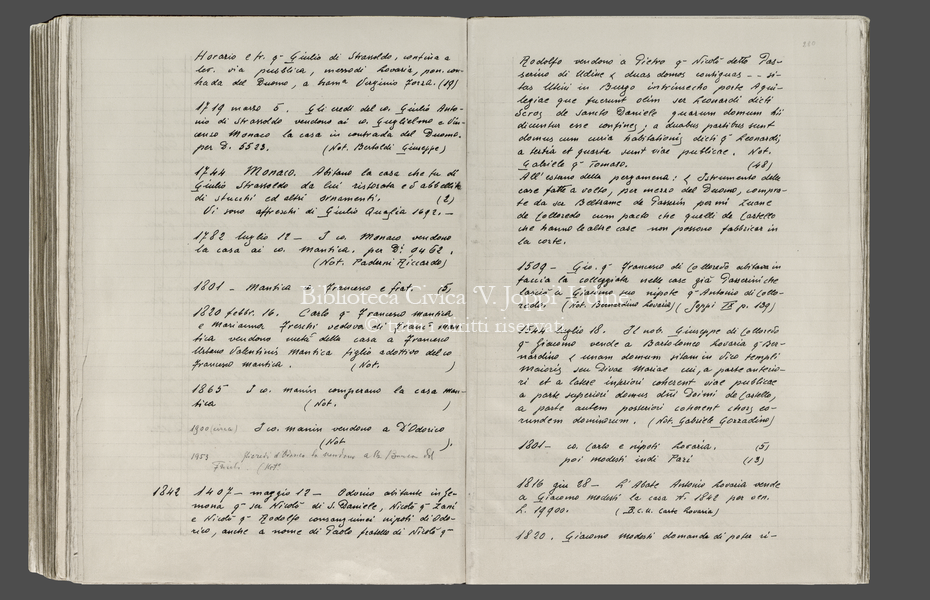 Horario e fr. q Giulio di Strasoldo, confina a
lev. via pubblica, merzodì Lovaria, pon. con-
trada del Duomo, a tram. Virginio Forza. (19)
1719 marzo 5. Gli eredi del co. Giulio Anto-
nio di Strasoldo vendono ai co. Guglielmo e Vin-
cenzo Monaco la casa in contrada del Duomo.
per D. 5523. (Not. Bertoldi Giuseppe)
1744 Monaco. Abitano la casa che fu di
Giulio Strasoldo da lui ristorata e abbellita
di stucchi ed altri ornamenti. (2)
Vi sono affreschi di Giulio Quaglia 1692. —
1782 luglio 12 — I co. Monaco vendono
la casa ai co. Mantica. per D.
(Not. Paderni Riccardo)
1801 — Mantica Francesco e frat. (5)
1820 febbr. 16. Carlo q Francesco Mantica
e Marianna Freschi vedova Man-
tica vendono metà della casa a Francesco
Urbano Valentinis Mantica figlio adottivo del co
Francesco Mantica. (Not. )
1865 I co. Manin comperano la casa Man-
tica (Not. )
1900 (circa) I co. Manin vendono a D'Odorico
(Not. ).
1953 la vendono a la Banca del
Friuli. (Not.
1842 1407 — maggio 12 — Odorico abitante in Ge-
mona q ser Nicolò di S. Daniele, Nicolò q Zani
e Nicolò q Rodolfo consanguinei nipoti di Odo-
rico, anche a nome di Paolo fratello di Nicolò q
Rodolfo vendono a Pietro q Nicolò detto Pas-
serino di Udine duas domos contiguas -- si-
tas Utini in Burgo intrinseco porte Aqui-
legiae que fuerunt olim ser Leonardi dicti
Scros de Sancto Daniele quarum domum
dicuntur esse confines; a duabus partibus sunt
domus cum curia habitationis dicti q Leonardi,
a tertia et quarta sunt viae publicae. Not.
Gabriele q Tomaso. (48)
All'esterno della pergamena: Istrumento delle
case fatte a volto, per mezzo del Duomo, compra-
te da ser Beltrame de Passerin per mi Zuane
de Colloredo cum pacto che quelli de Castello
che hanno le altre case non possono fabbricar in
la corte.
1509 — Gio. q Francesco di Colloredo abitava in
faccia la collegiata nelle case già Passerini che
lasciò a Giacomo suo nipote q Antonio di Collo-
redo. (Not. Bernardino Lovaria) (Joppi IX p. 139)
1544 luglio 18. Il nob. Giuseppe di Colloredo
q Giacomo vende a Bartolomeo Lovaria q Ber-
nardino unam domum sitam in vico templi
maioris seu Divae Mariae cui, a parte anterio-
ri et a latere inferiori coherent viae publicae
a parte superiori domus dñi Doimi de Castello,
a parte autem posteriori coherent choris eo-
rundem dominorum. (Not. Gabriele Gorradino)
1801 — co. Carlo e nipoti Lovaria. (5)
poi Modesti indi Pari (13)
1816 giu 28 — L'Abate Antonio Lovaria vende
a Giacomo Modesti la casa N. 1842 per ven.
L. 19900. (B.C.U. Carte Lovaria)
1820. Giacomo Modesti domanda di poter ri-
Biblioteca Civica 'V. Joppi' Udine
© tutti i diritti riservati